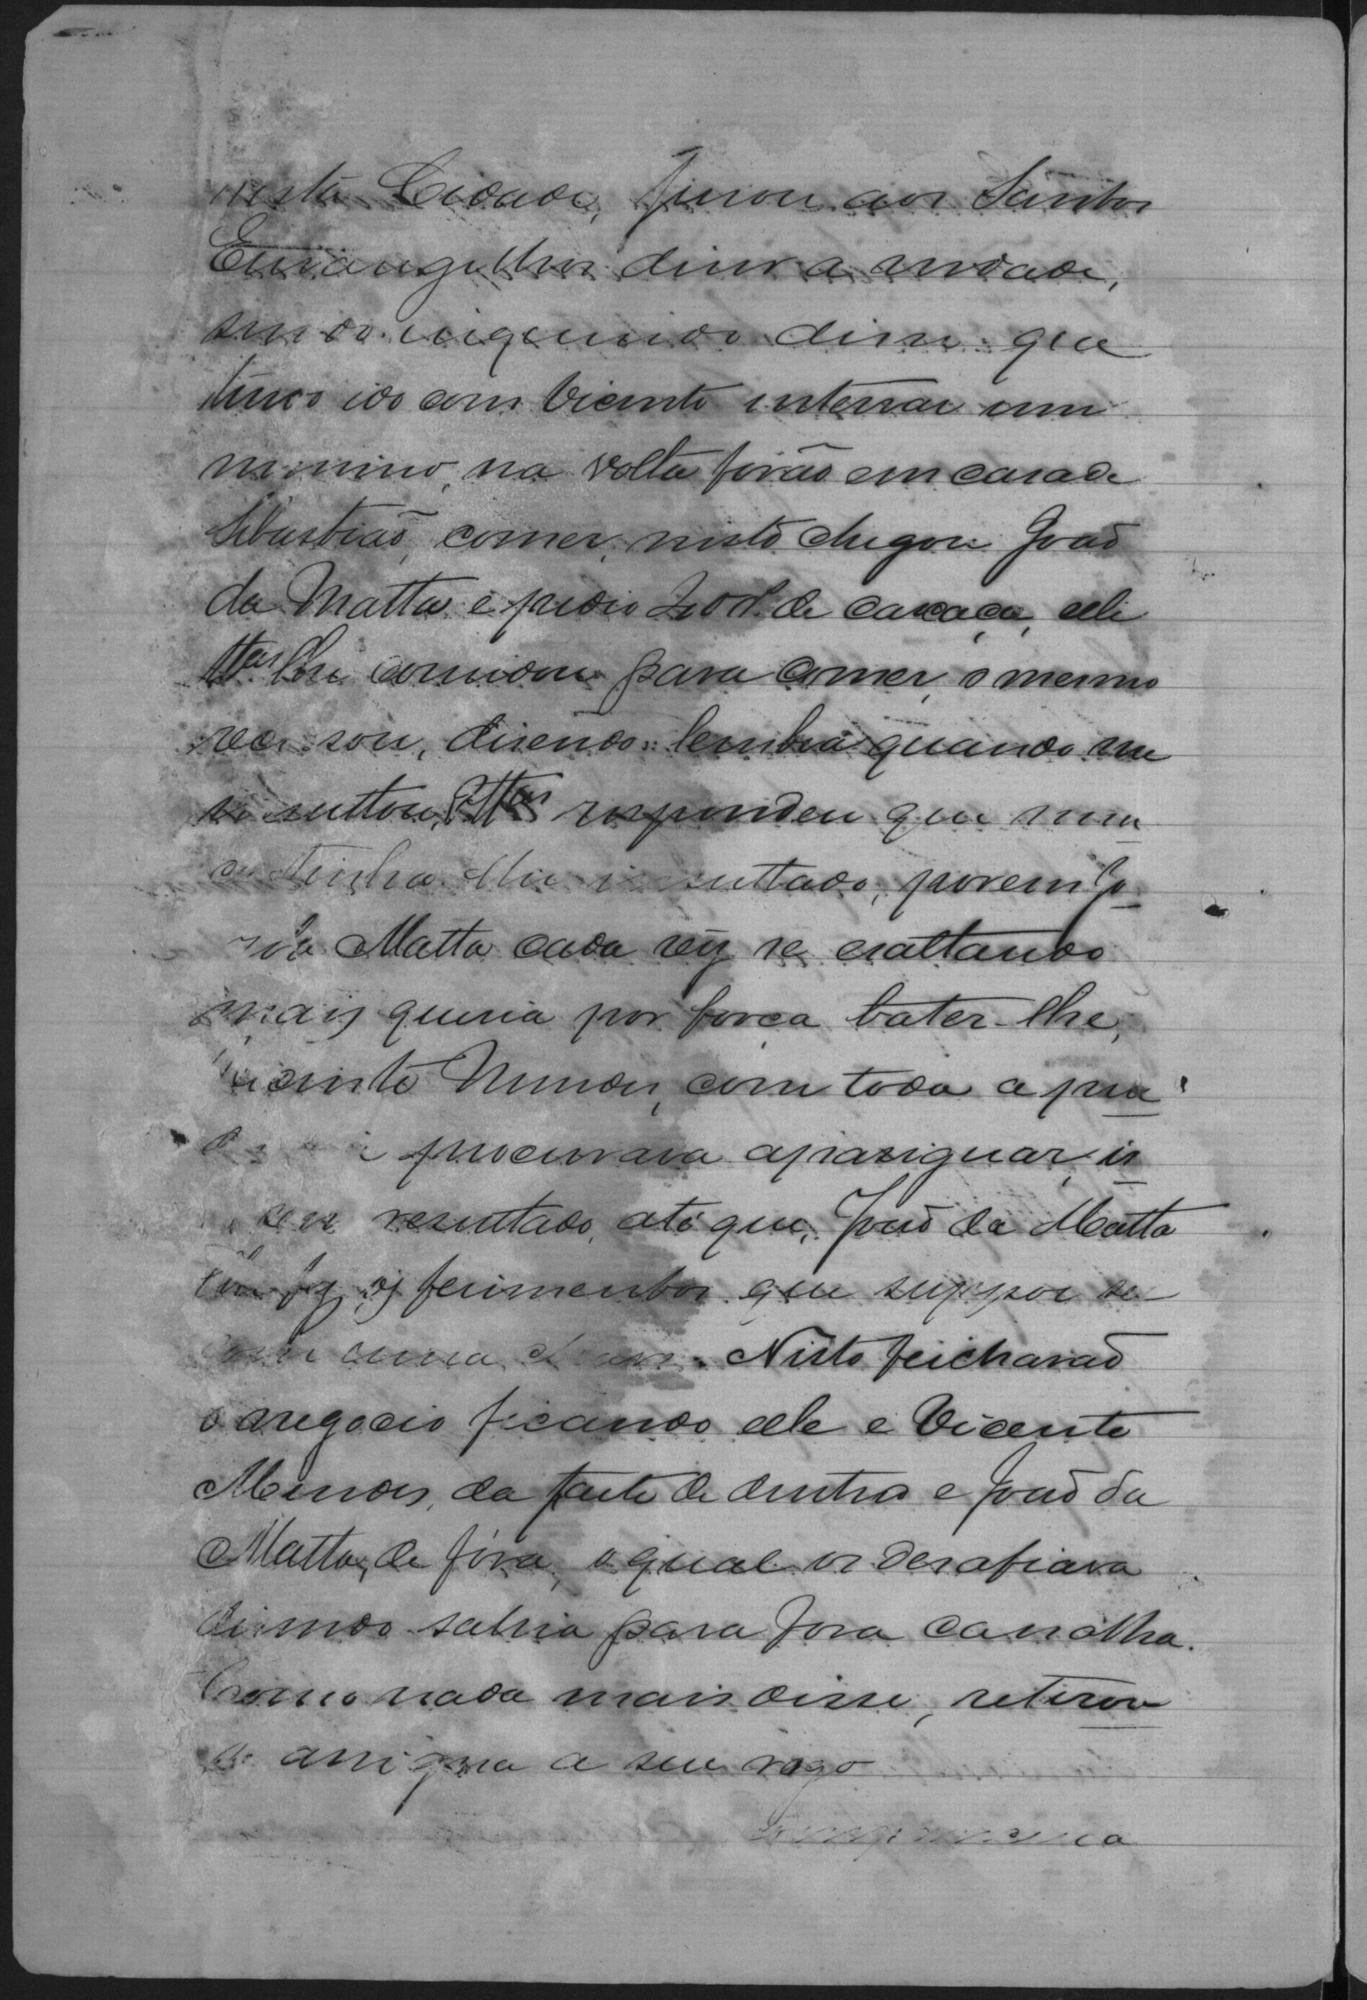 nesta Cidade, jurou aos Santos
Evangelhos diser a verdade,
sendo inquirido disse que
tendo ido com Vicente interrar um
menino, na volta forão em casa de
Sebastião, comer, nisto chegou João
da Matta e pedio 200rs de caxaça, elle
ttas lhe convidou para comer, o mesmo
recusou, disendo: lembra quando me
insultou, Ttas respondeu que nun
ca tinha lhe insultado, porem Jo
ão da Matta cada vez se exaltando
mais queria por força bater-lhe,
Vicente Mendes, com toda a pru
procurava apasiguar, is
sem resultado, até que, João da Matta
lhe fez os ferimentos que suppoe ser
com uma Nisto feicharaõ
o negocio ficando elle e Vicente
Mendes, da parte de dentro e João da
Matta, de fóra, o qual os desafiava
disendo sahia para fora canalha.
Como nada mais disse, retirou
se assigna a seu rogo